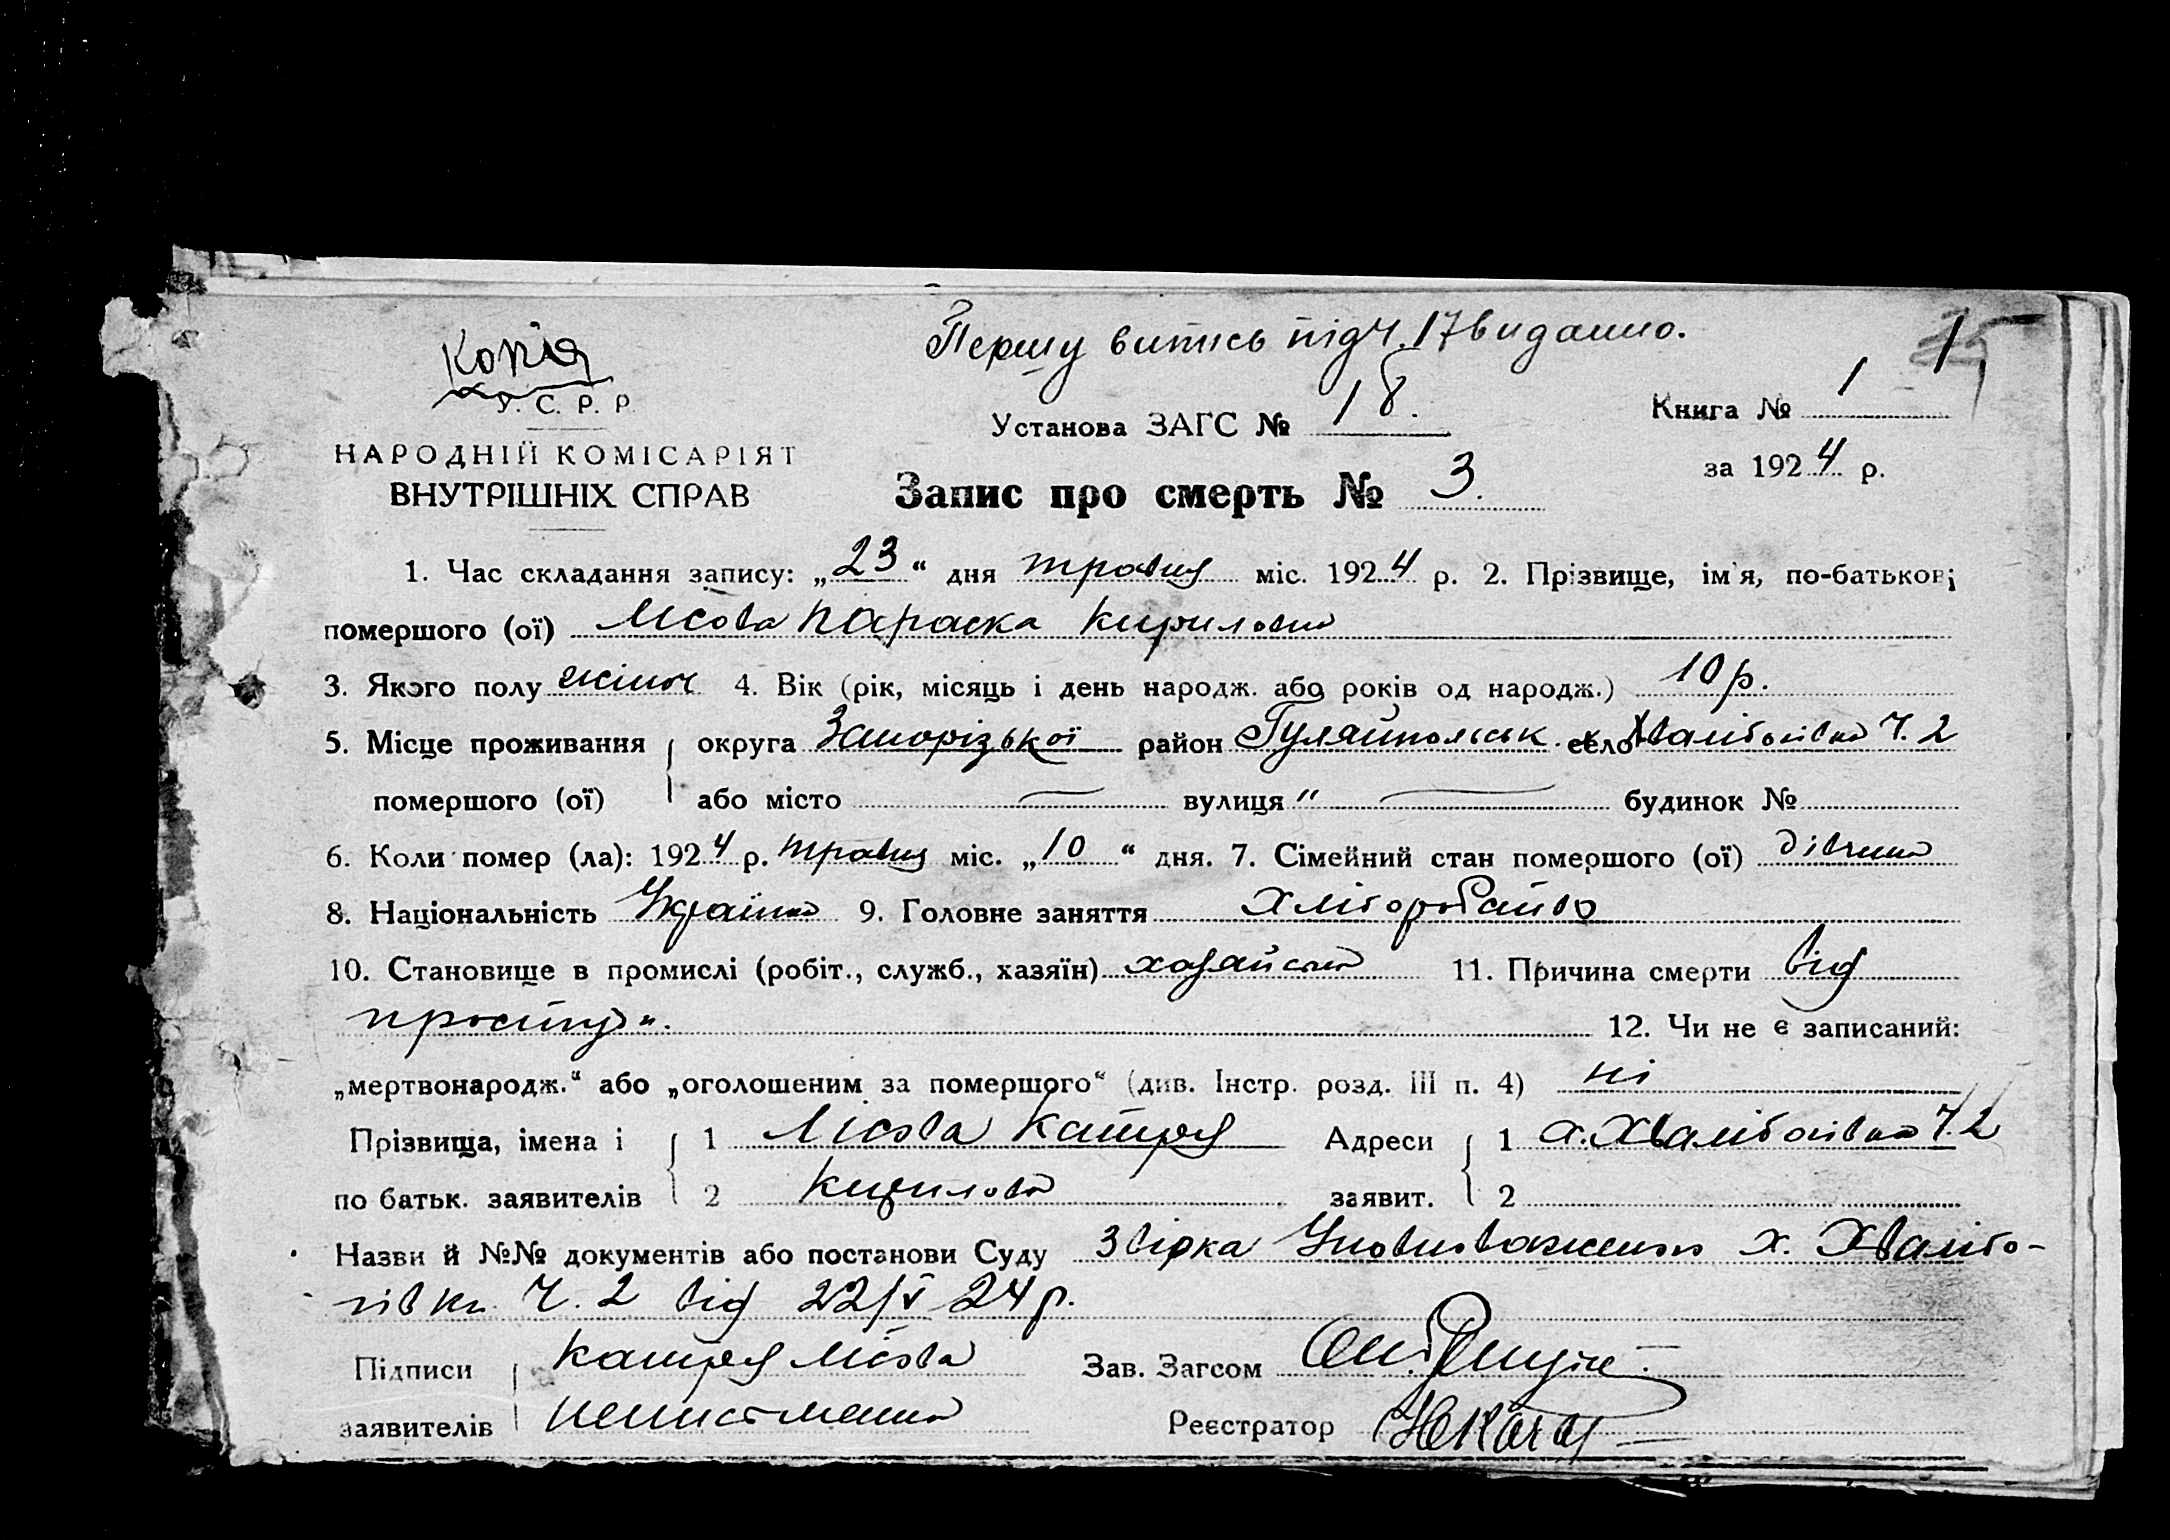 Копія
Першу витпсь під Ч. 17 видано.
У. С. Р. Р.
Установа ЗАГС № 18.
Книга № 1
1
НАРОДНІЙ КОМІСАРІЯТ
ВНУТРІШНІХ СПРАВ
за 1924 р.
Запис про смерть № 3.
1. Час складання запису: „23“ дня травня міс. 1924 р. 2. Прізвище, ім'я, по-батькові
помершого (ої) Лісова Параска Кирилівна
3. Якого полу жіноч 4. Вік (рік, місяць і день народж. або років од народж.) 10 р.
5. Місце проживання округа Запорізької район Гуляйпольськ село Ч. 2
помершого (ої) або місто — вулиця " — будинок №
6. Коли помер (ла): 1924 р. травня міс. „10“ дня. 7. Сімейний стан помершого (ої) дівчина
8. Національність Українка 9. Головне заняття хліборобство
10. Становище в промислі (робіт., служб., хазяїн) 11. Причина смерти від
простуди.
12. Чи не є записаний:
„мертвонародж.“ або „оголошеним за помершого“ (див. Інстр. розд. III п. 4) ні
Прізвища, імена і 1 Лісова Катря Адреси 1 Ч. 2
по батьк. заявителів 2 Кирилова заявит. 2
Назви й №№ документів або постанови Суду Уповноваженого х.
Ч. 2 від 22/V 24 р.
Підписи Катря Лісова Зав. Загсом
заявителів неписьменна Реєстратор